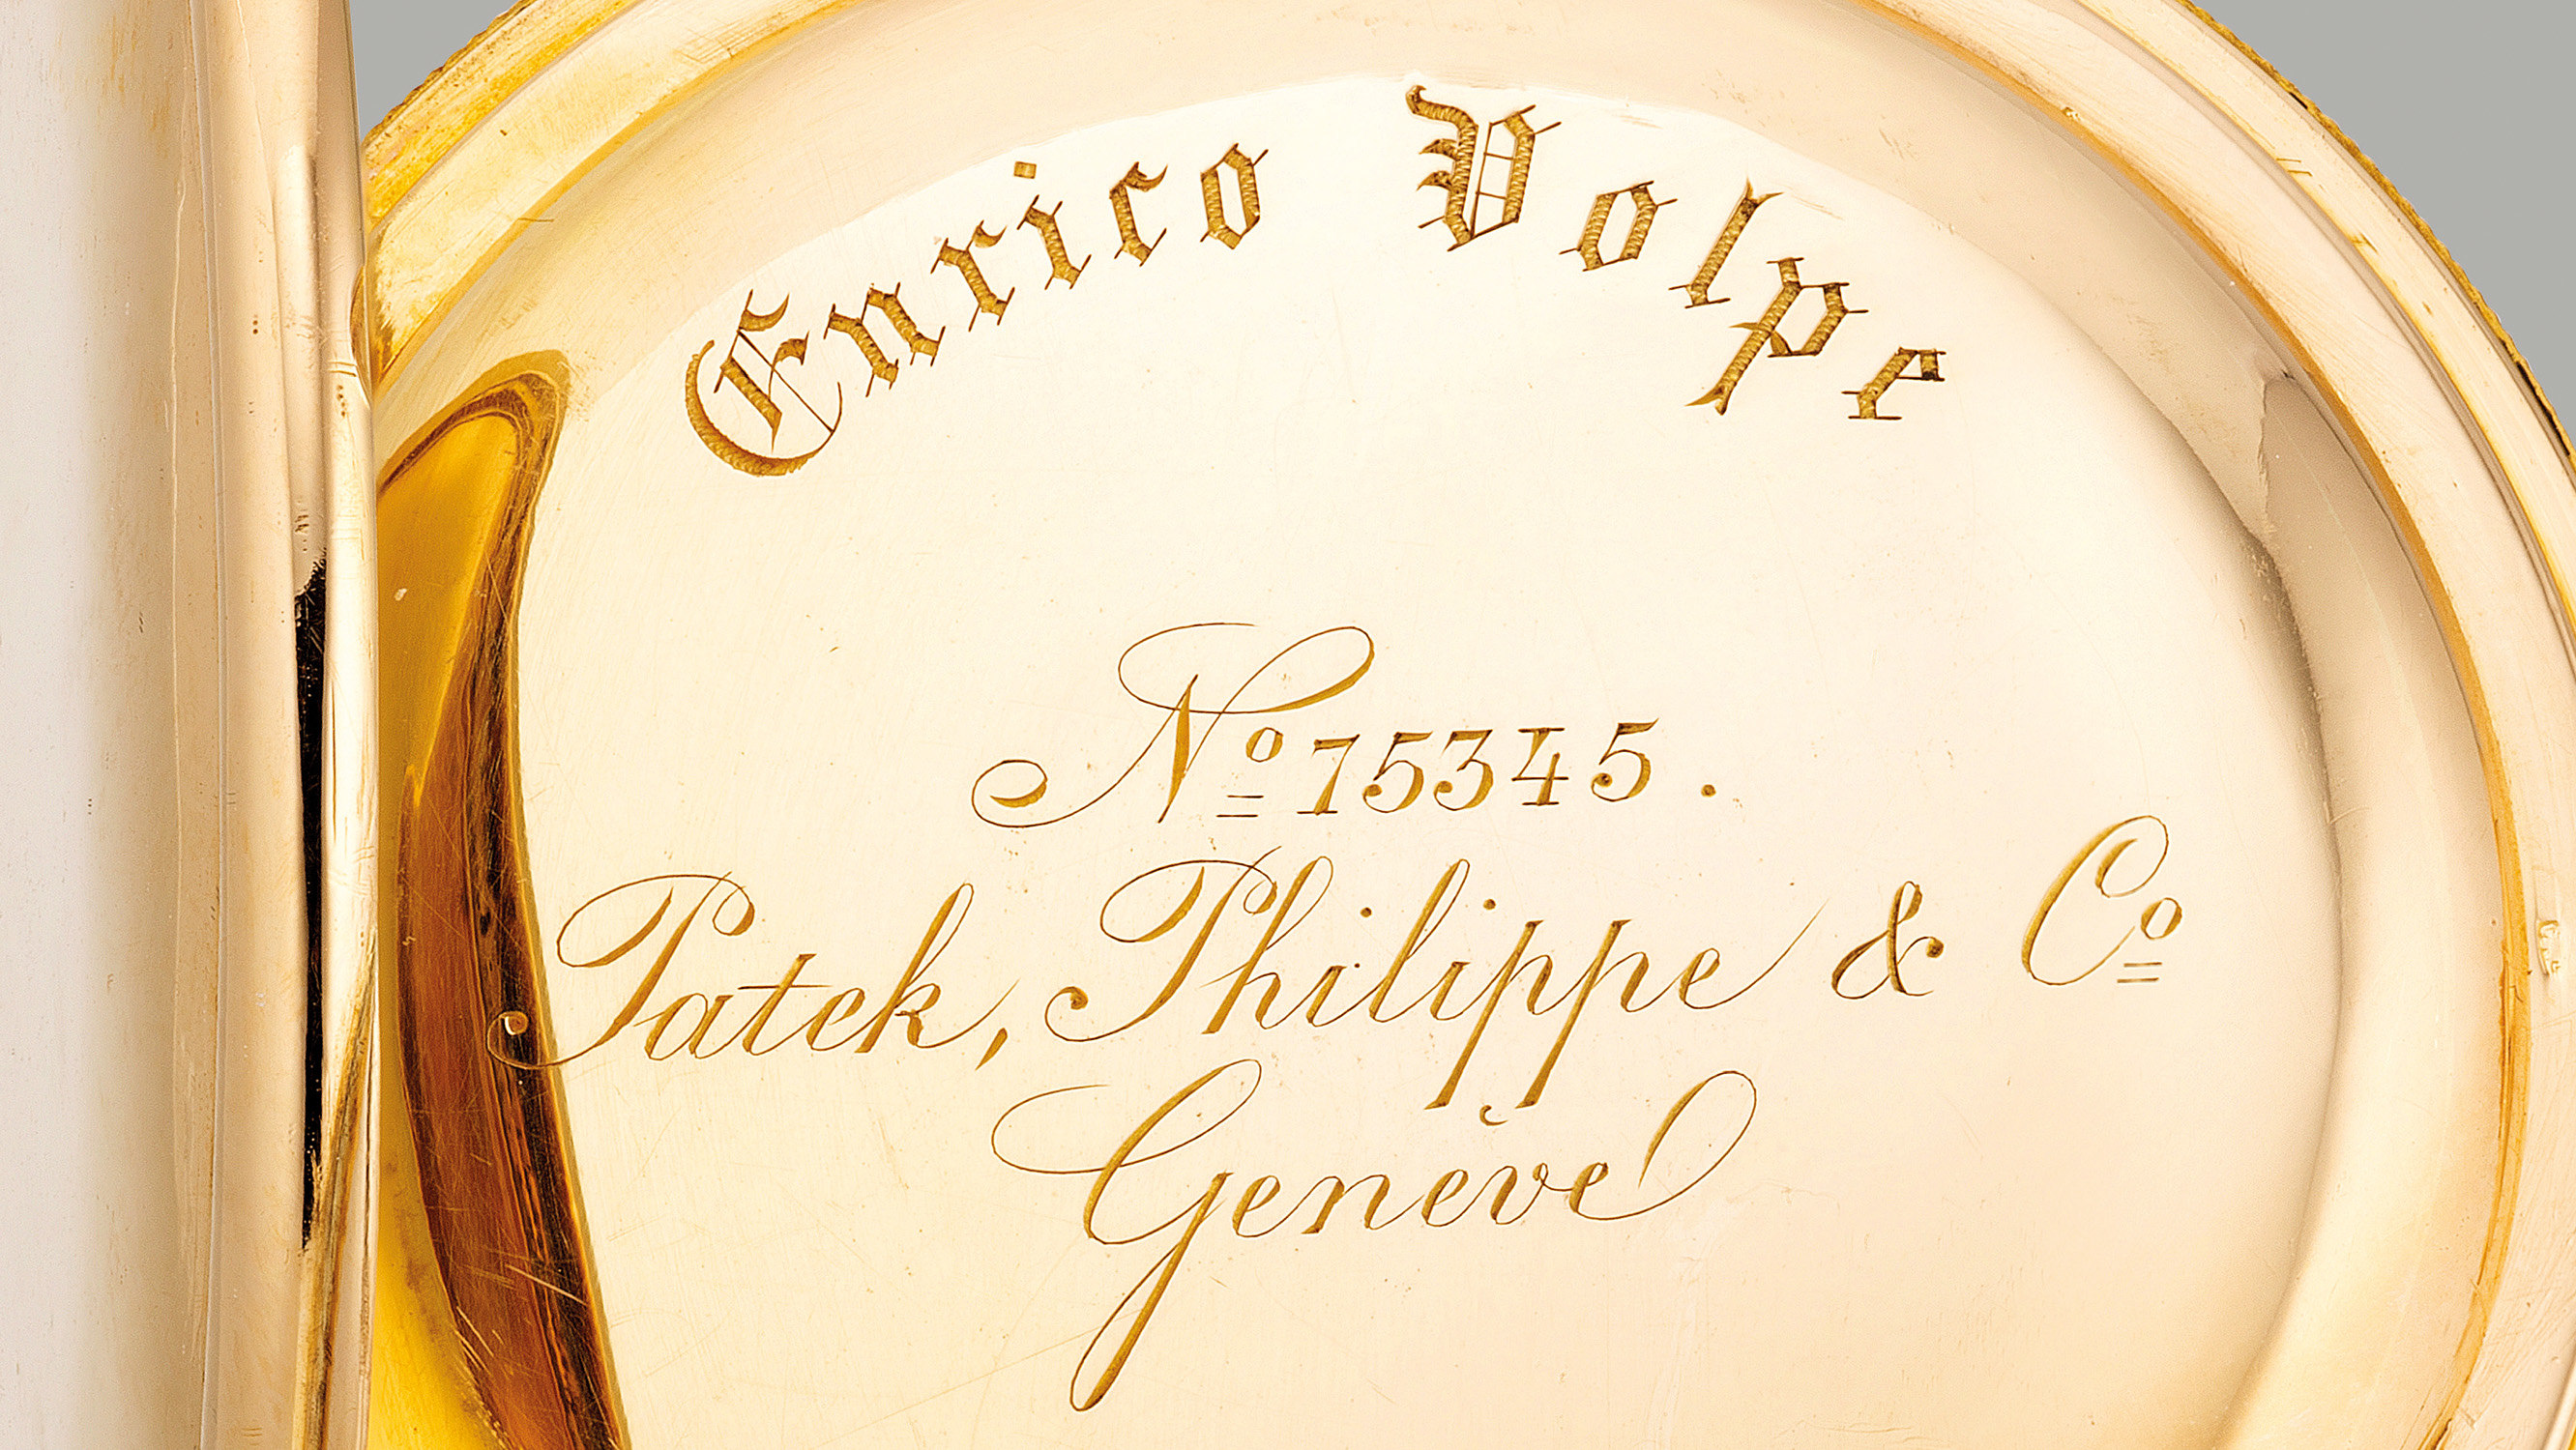 Enrico Volpe
Nº 75345.
Patek, Philippe & Cº
Genève